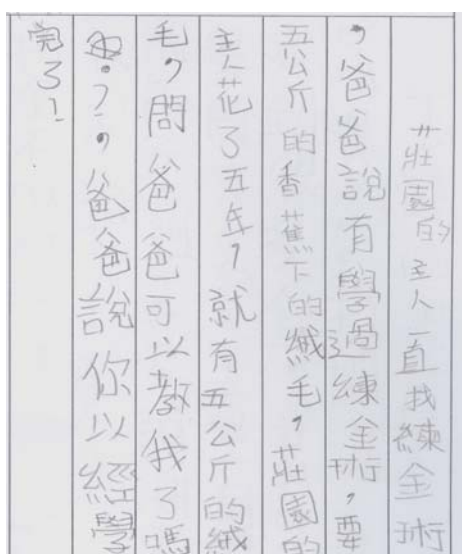 莊園的主人一直找練金術
，爸爸說有學過練金術，要
五公斤的香蕉下的絨毛，莊園的
主人花了五年，就有五公斤的絨
毛，問爸爸可以教我了嗎
？，爸爸說你以經學
完了！